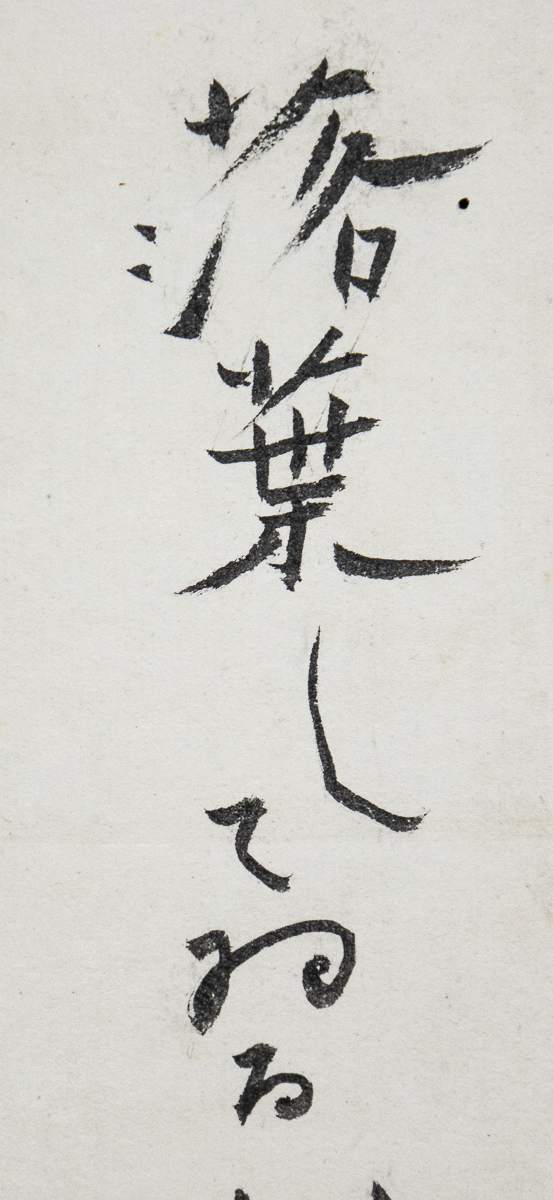 落葉してゐる